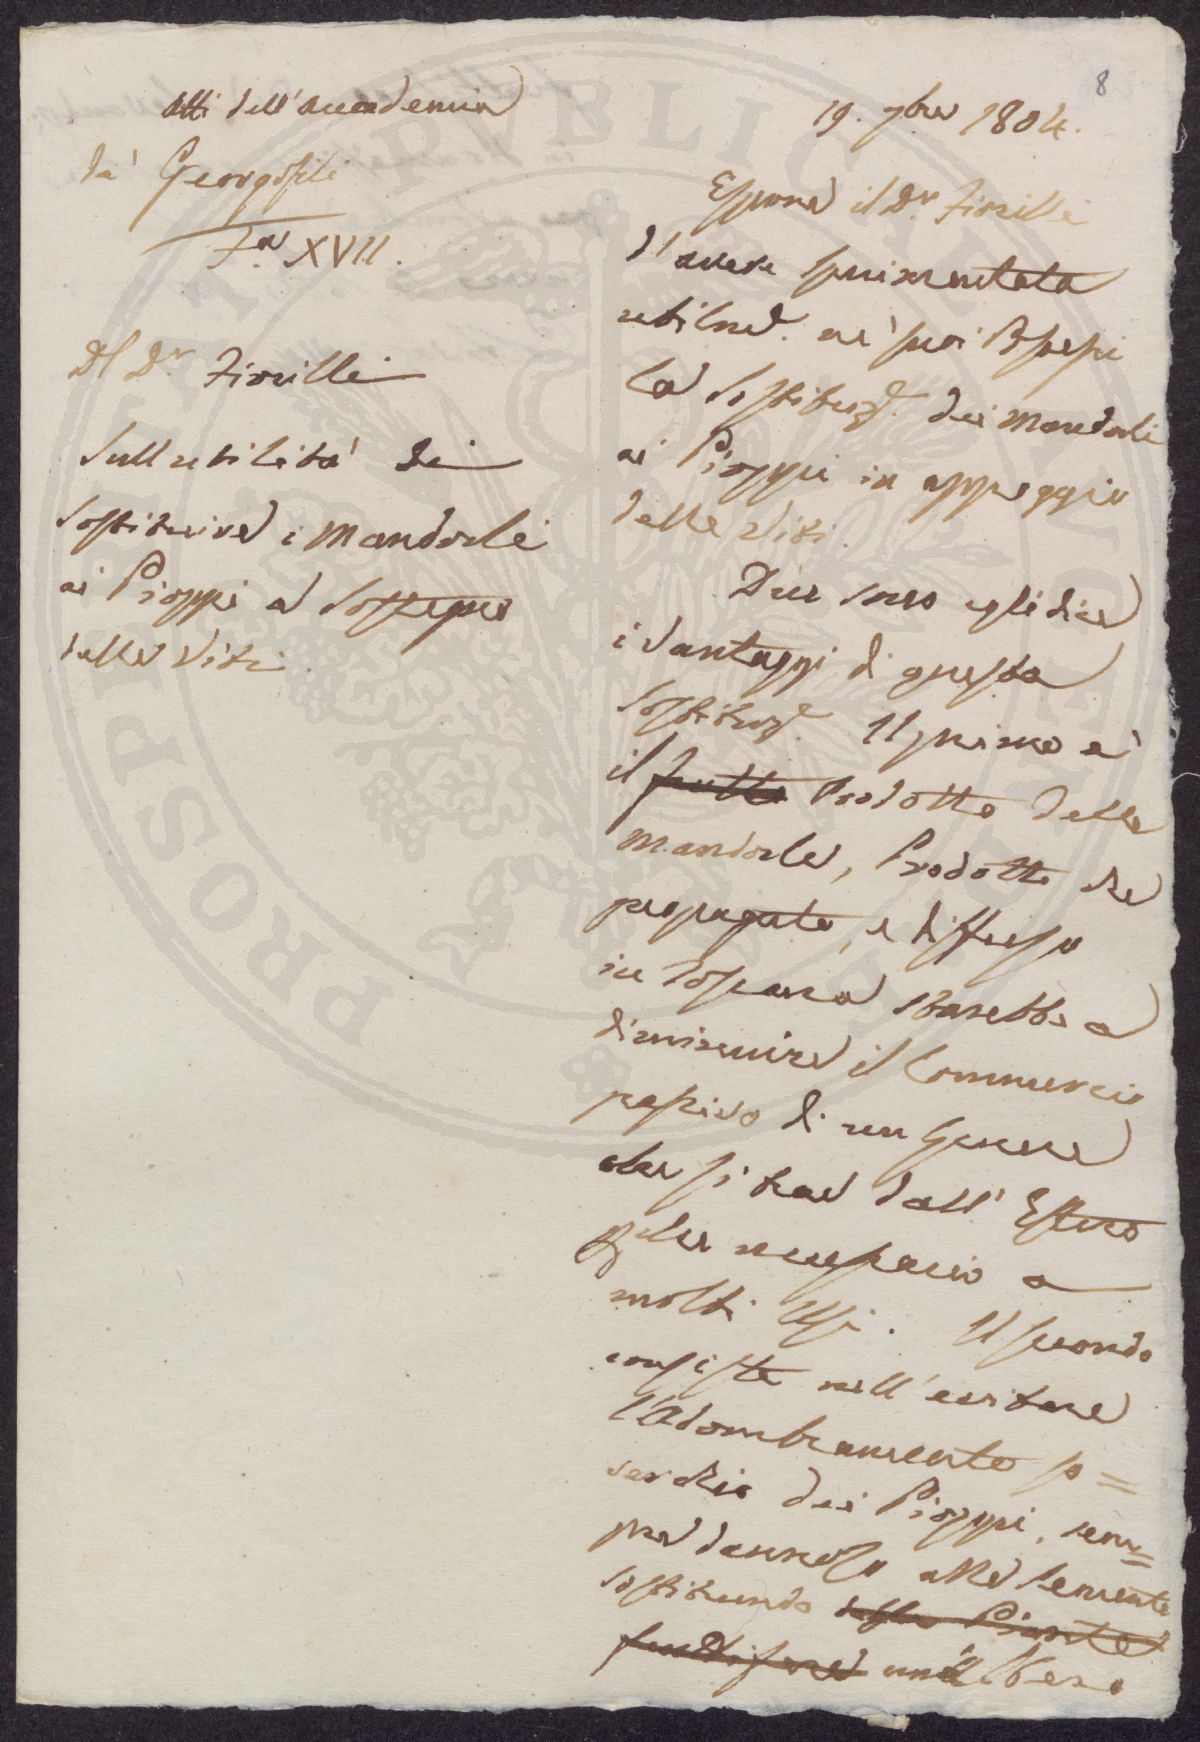 8
Atti dell'Accademia
de' Georgofili
T.º XVII.
Del D.r Fiorilli
Sull'utilità di
sostituire i Mandorli
ai Pioppi a sostegno
delle Viti.
19. 7bre 1804.
Espone il D.r Fiorilli
d'avere sperimentata
utilme. ne' suoi Possessi
la sostituze. dei Mandorli
ai Pioppi in appoggio
delle Viti.
Due sono egli dice
i vantaggi di questa
sostituze. Il primo è
il frutto Prodotto delle
Mandorle, Prodotto che
propagato, e diffuso
in Toscana starebbe a
diminuire il Commercio
passivo di un Genere
che si trae dall'Estero
necessario a
molti Usi. Il secondo
consiste nell'evitare
l'Adombramento so=
verchio dei Pioppi, sem=
pre dannoso alle semente
sostituendo Piante
fruttifere un Albero
PUBLICAE
PROSPERITATI